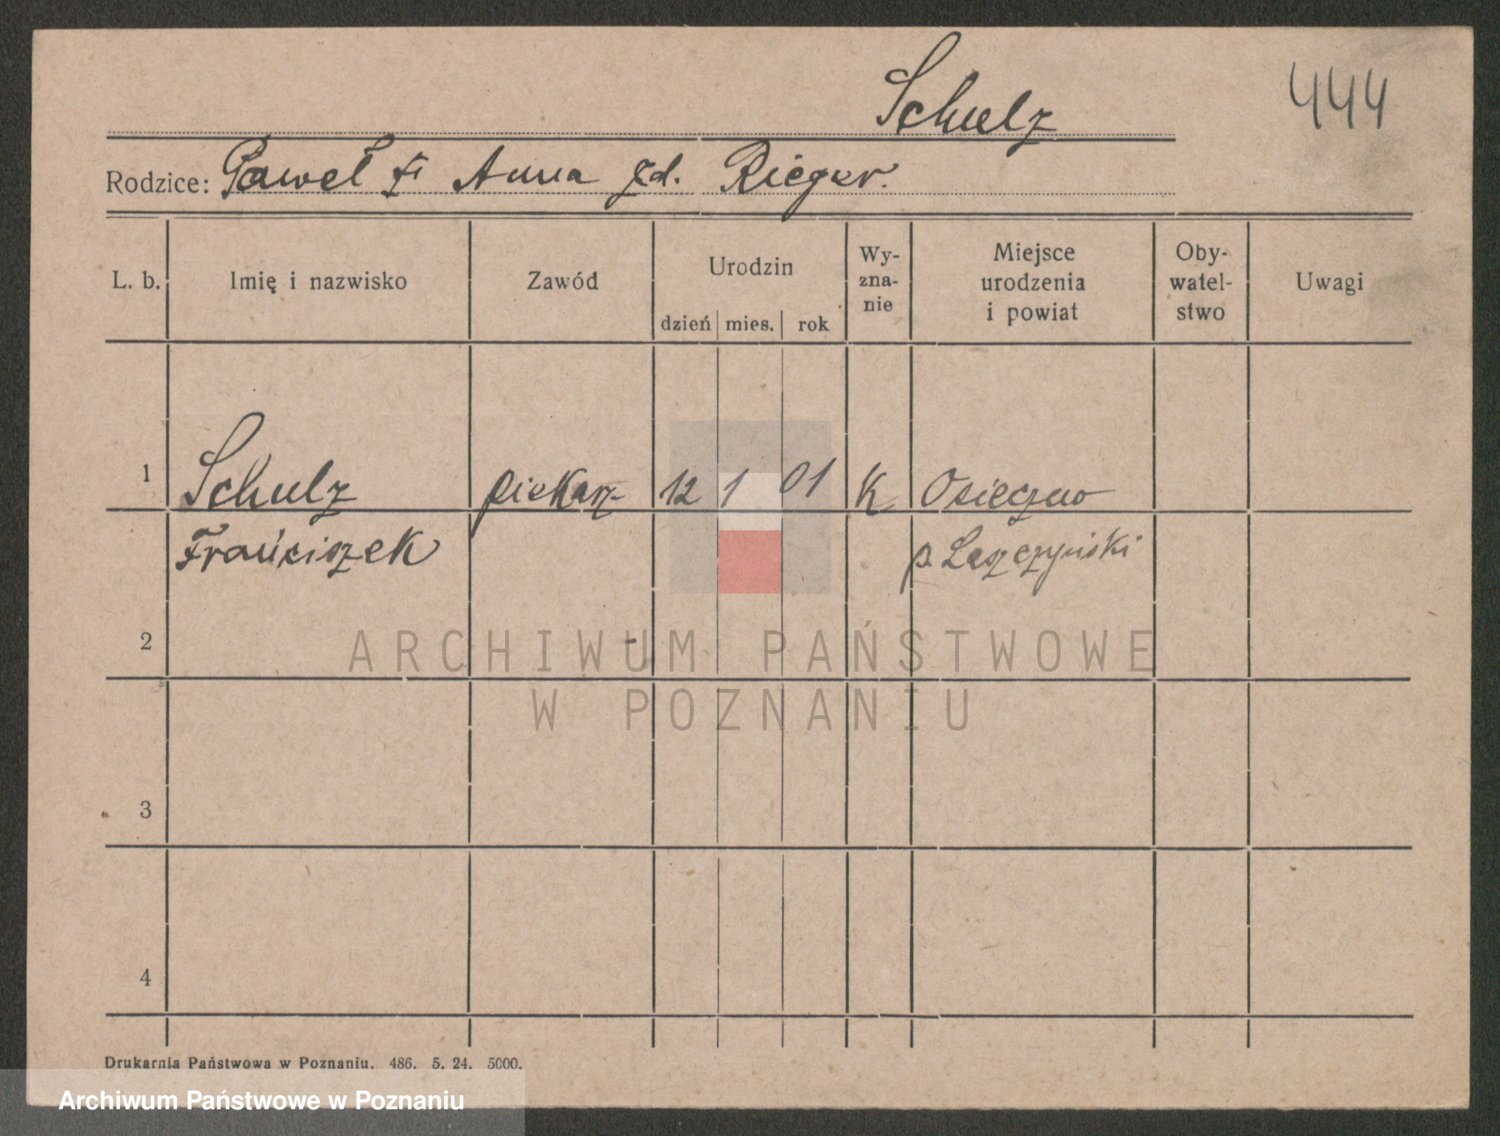 Schulz
444
Rodzice: Paweł i Anna zd. Rieger.
L. b. Imię i nazwisko Zawód Urodzin dzień mies. rok Wy-zna-nie Miejsce urodzenia i powiat Oby-watel-stwo Uwagi
1 Schulz piekarz 12 1 01 K Osieczno
Franciszek p. Leszczyński
2
ARCHIWUM PAŃSTWOWE
W POZNANIU
3
4
Drukarnia Państwowa w Poznaniu. 486. 5. 24. 5000.
Archiwum Państwowe w Poznaniu